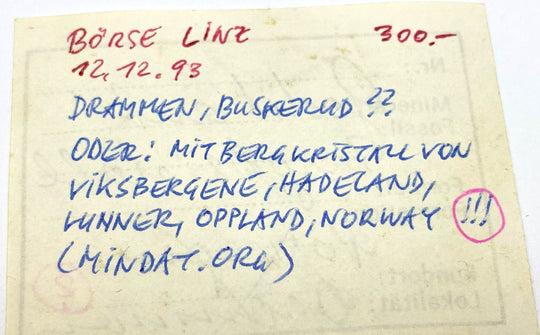 BÖRSE LINZ 300.-
12.12.93
DRAMMEN, BUSKERUD ??
ODER: MIT BERGKRISTALL VON
VIKSBERGENE, HADELAND,
LUNNER, OPPLAND, NORWAY !!!
(MINDAT.ORG)
Nr.:
Fossil
Lokalität: